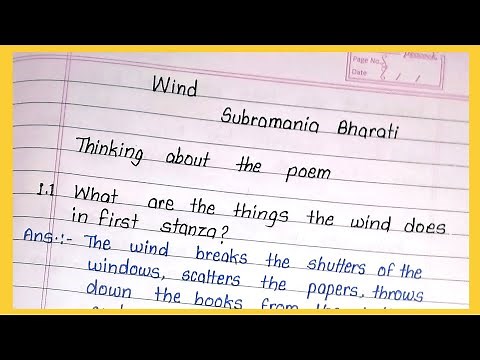 Page No.
Date
Wind
Subramania Bharati
Thinking about the poem
1.1 What are the things the wind does
in first stanza?
Ans:- The wind breaks the shutters of the
windows, scatters the papers, throws
down the books from the